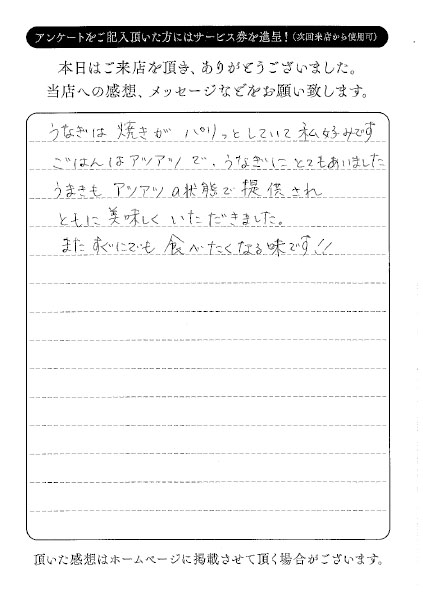 アンケートをご記入頂いた方にはサービス券を進呈！（次回来店から使用可）
本日はご来店を頂き、ありがとうございました。
当店への感想、メッセージなどをお願い致します。
うなぎは 焼きが パリッとしていて 私好みです
ごはんはアツアツで、うなぎにとてもあいました
うまきも アツアツの状態で提供され
ともに 美味しく いただきました。
またすぐにでも 食べたくなる味です!!
頂いた感想はホームページに掲載させて頂く場合がございます。